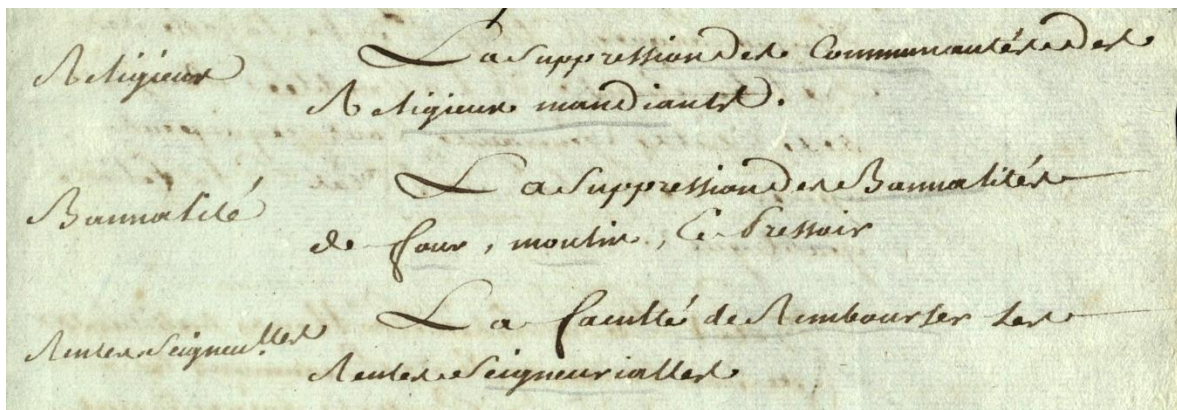 Religieux
La Suppression des Communautés des
Religieux mandiants.
Bannalité
La Suppression des Bannalités
de four, moulin, Ce Pressoir
Rentes Seigneu.lles
La faculté de Rembourser les
Rentes Seigneurialles